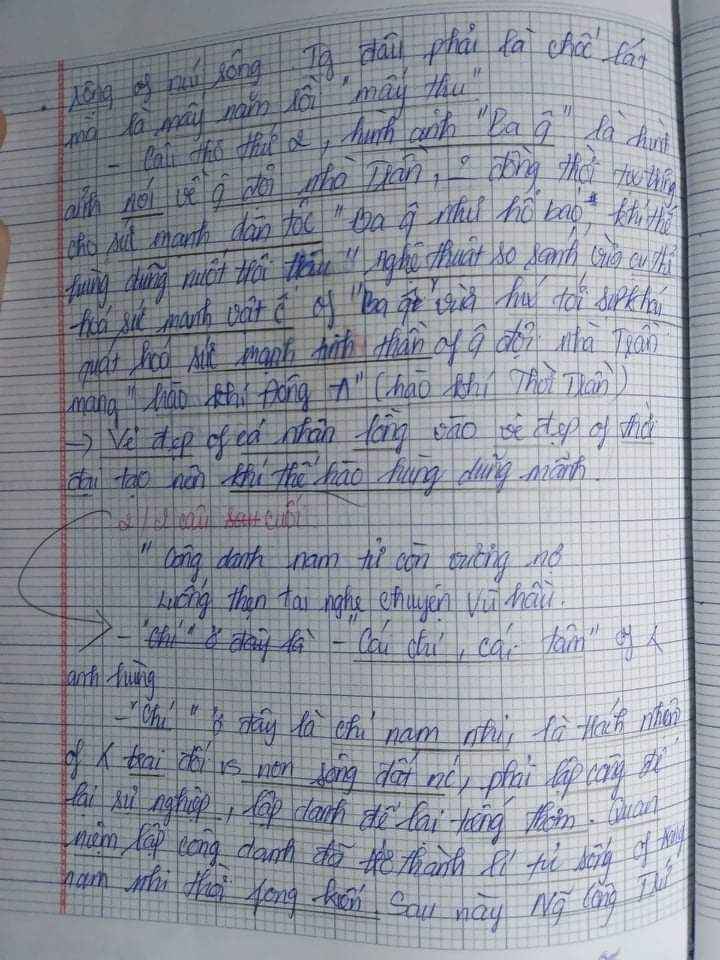 sông of núi sông Tg đâu phải là chốc lát
mà là mấy năm rồi "mấy thu"
- Câu thơ thứ 2, hình ảnh "Ba q̂" là hình
ảnh nói về q̂ đội nhà Trần, đồng thời tượng trưng
cho sức mạnh dân tộc "Ba q̂ như hổ báo, khí thế
hùng dũng nuốt trôi trâu" nghệ thuật so sánh vừa cụ thể
hoá sức mạnh vật c of "Ba q̂" vừa hướng tới sự khái
quát hoá sức mạnh tinh thần of q̂ đội nhà Trần
mang "hào khí Đông A" (hào khí Thời Trần)
→ Vẻ đẹp of cá nhân lồng vào vẻ đẹp of thời
đại tạo nên khí thế hào hùng dũng mãnh.
2/ 2 câu sau cuối
"Công danh nam tử còn vương nợ
Luống thẹn tai nghe chuyện Vũ hầu.
- "Chí" ở đây là - "Cái chí, cái tâm" of
anh hùng
- "Chí" ở đây là chí nam nhi, là trách nhiệm
of trai đối vs non sông đất nc, phải lập công để
lại sự nghiệp, lập danh để lại tiếng thơm. Quan
niệm lập công danh đã trở thành lí tg sống of
nam nhi thời fong kiến Sau này Ng̃ Công Trứ